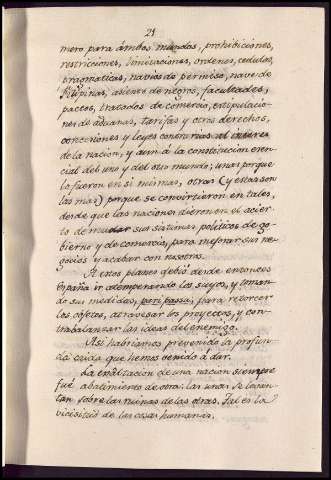 21
mero para ámbos mundos, prohibiciones,
restricciones, limitaciones, ordenes, cedulas,
pragmaticas, navios de permiso, nave de
Filipinas, asiento de negros, facultades,
pactos, tratados de comercio, estipulacio-
nes de aduanas, tarifas y otros derechos,
concesiones y leyes contrarias al interes
de la nacion, y aun á la constitucion esen-
cial del uno y del otro mundo; unas porque
lo fueron en si mismas, otras (y estas son
las mas) porque se convirtieron en tales,
desde que las naciones dieron en el acier-
to de mudar sus sistemas politicos de go-
bierno y de comercio, para mejorar sus ne-
gocios y acabar con nosotros.
A estos planes debió desde entonces
España ir atemperando los suyos, y toman-
do sus medidas, pari passu, para retorcer
los objetos, atravesar los proyectos, y con-
trabalanzar las ideas del enemigo.
Asi habriamos prevenido la profun-
da caida que hemos venido á dar.
La exâltacion de una nacion siempre
fué abatimiento de otra: las unas se levan-
tan sobre las ruinas de las otras. Tal es la
vicisitud de las cosas humanas.